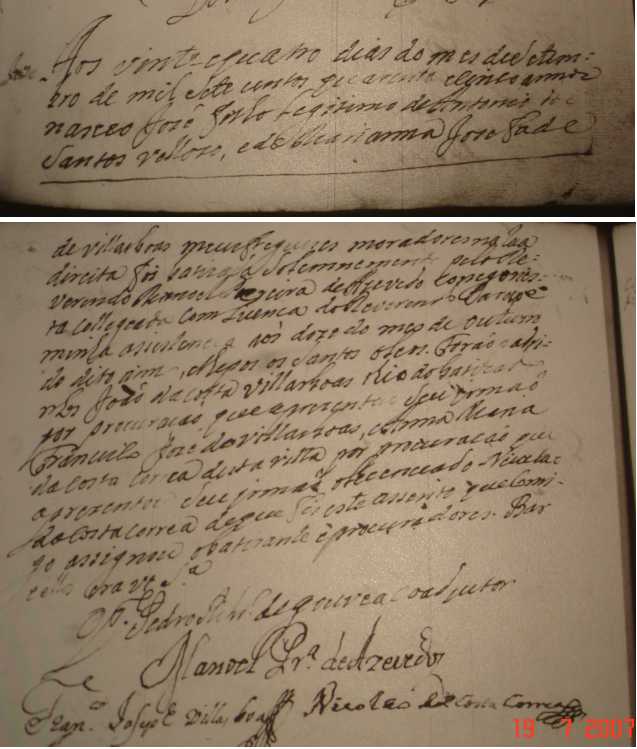 Aos vinte equatro dias do mes de Setem=
bro de mil Sete centos quarenta e sinco annos
nasceo José filho legitimo de Antonio dos
Santos Vellozo, e de Marianna Josefa de
de Villas boas meus freguezes moradores na Rua
direita foi batizado Solemnemente pelo Re=
verendo Manoel Pereira de Azevedo Conego nes=
ta collegiada com Licença do Reverendo
minha assistencia aos doze do mes de outubro
do dito anno, e lhe pos os Santos oleos. Forão
João da Costa Villas boas
por procuração que aprezentou Seu Irmaõ
Francisco José de Villas boas, e Maria
da Costa Correa desta villa por procuração que
aprezentou Seu Irmaõ o Lecenceado Nicolao
da Costa Correa de que fis este assento que Comi-
go assignou o batizante e procuradores. Bar
cellos era ut Sª
Pedro de coadjutor
Manoel Prª de Azevedo
Franco Joseph Villas boas Nicolao da Costa Correa
19 7 2007